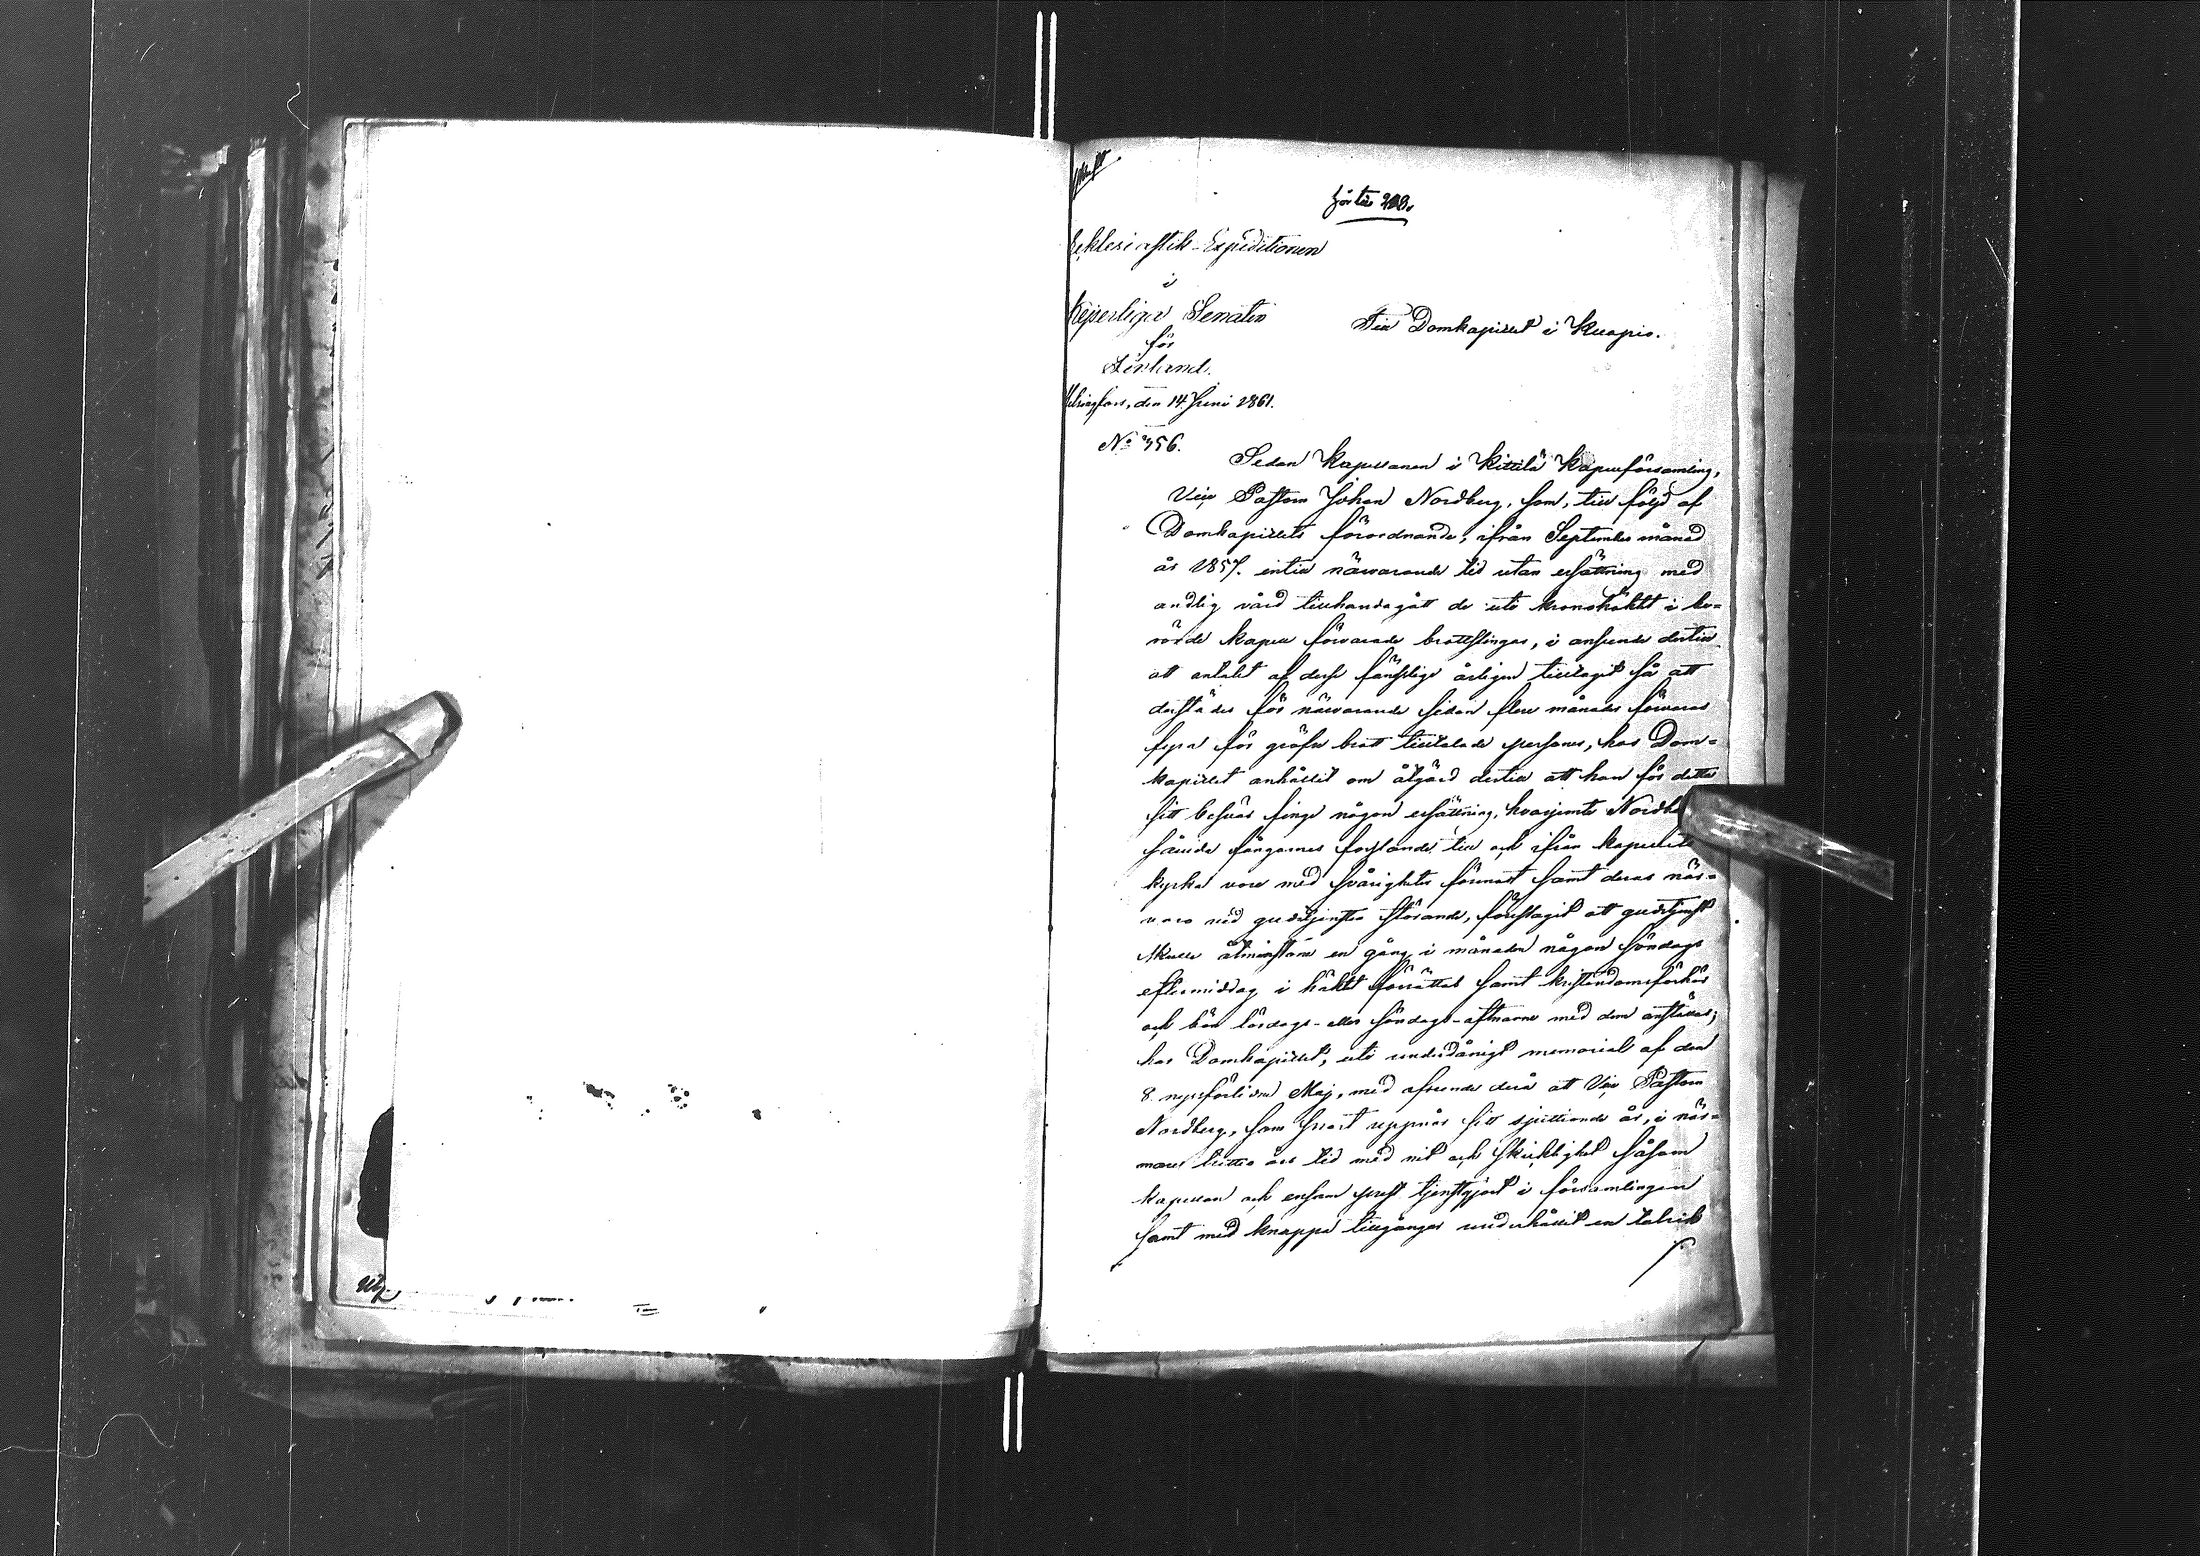 Ecklesiastik-Expeditionen
i
Kejserliga Senaten
för
Finland.
Helsingfors, den 14 Juni 1861.
No 356.
Till Domkapitlet i Kuopio.
Sedan Kapellanen i Kittilä Kapellförsamling,
Vice Pastorn Johan Nordberg, som, till följd af
Domkapitlets förordnande, ifrån September månad
år 1857. intill närvarande tid utan ersättning med
andlig vård tillhandagått de uti kronohäktet i be-
rörde kapell förvarade brottslingar, i anseende dertill
att antalet af desse fängslige årligen tilltagit så att
derstädes för närvarande sedan flere månader förvaras
fyra för gröfre brott tilltalade personer, hos Dom-
kapitlet anhållit om åtgärd dertill att han för detta
sitt besvär finge någon ersättning, hvarjemte Nordb
fångarnes forslande till och ifrån kapellets
kyrka vore med svårigheter förenadt samt deras när-
varo vid gudstjensten störande, föreslagit att gudstjenst
skulle åtminstone en gång i månaden någon söndags
eftermiddag i häktet förrättas samt kristendomsförhör
och bön lördags- eller söndags-aftnarne med dem anställas;
har Domkapitlet, uti underdånigt memorial af den
8 nyssförlidne Maj, med afseende derå att Vice Pastorn
Nordberg, som snart uppnår sitt sjuttionde år, i när-
mare trettio års tid med nit och skicklighet såsom
kapellan och ensam prest tjenstgjort i församlingen
samt med knappa tillgångar underhållit en talrik